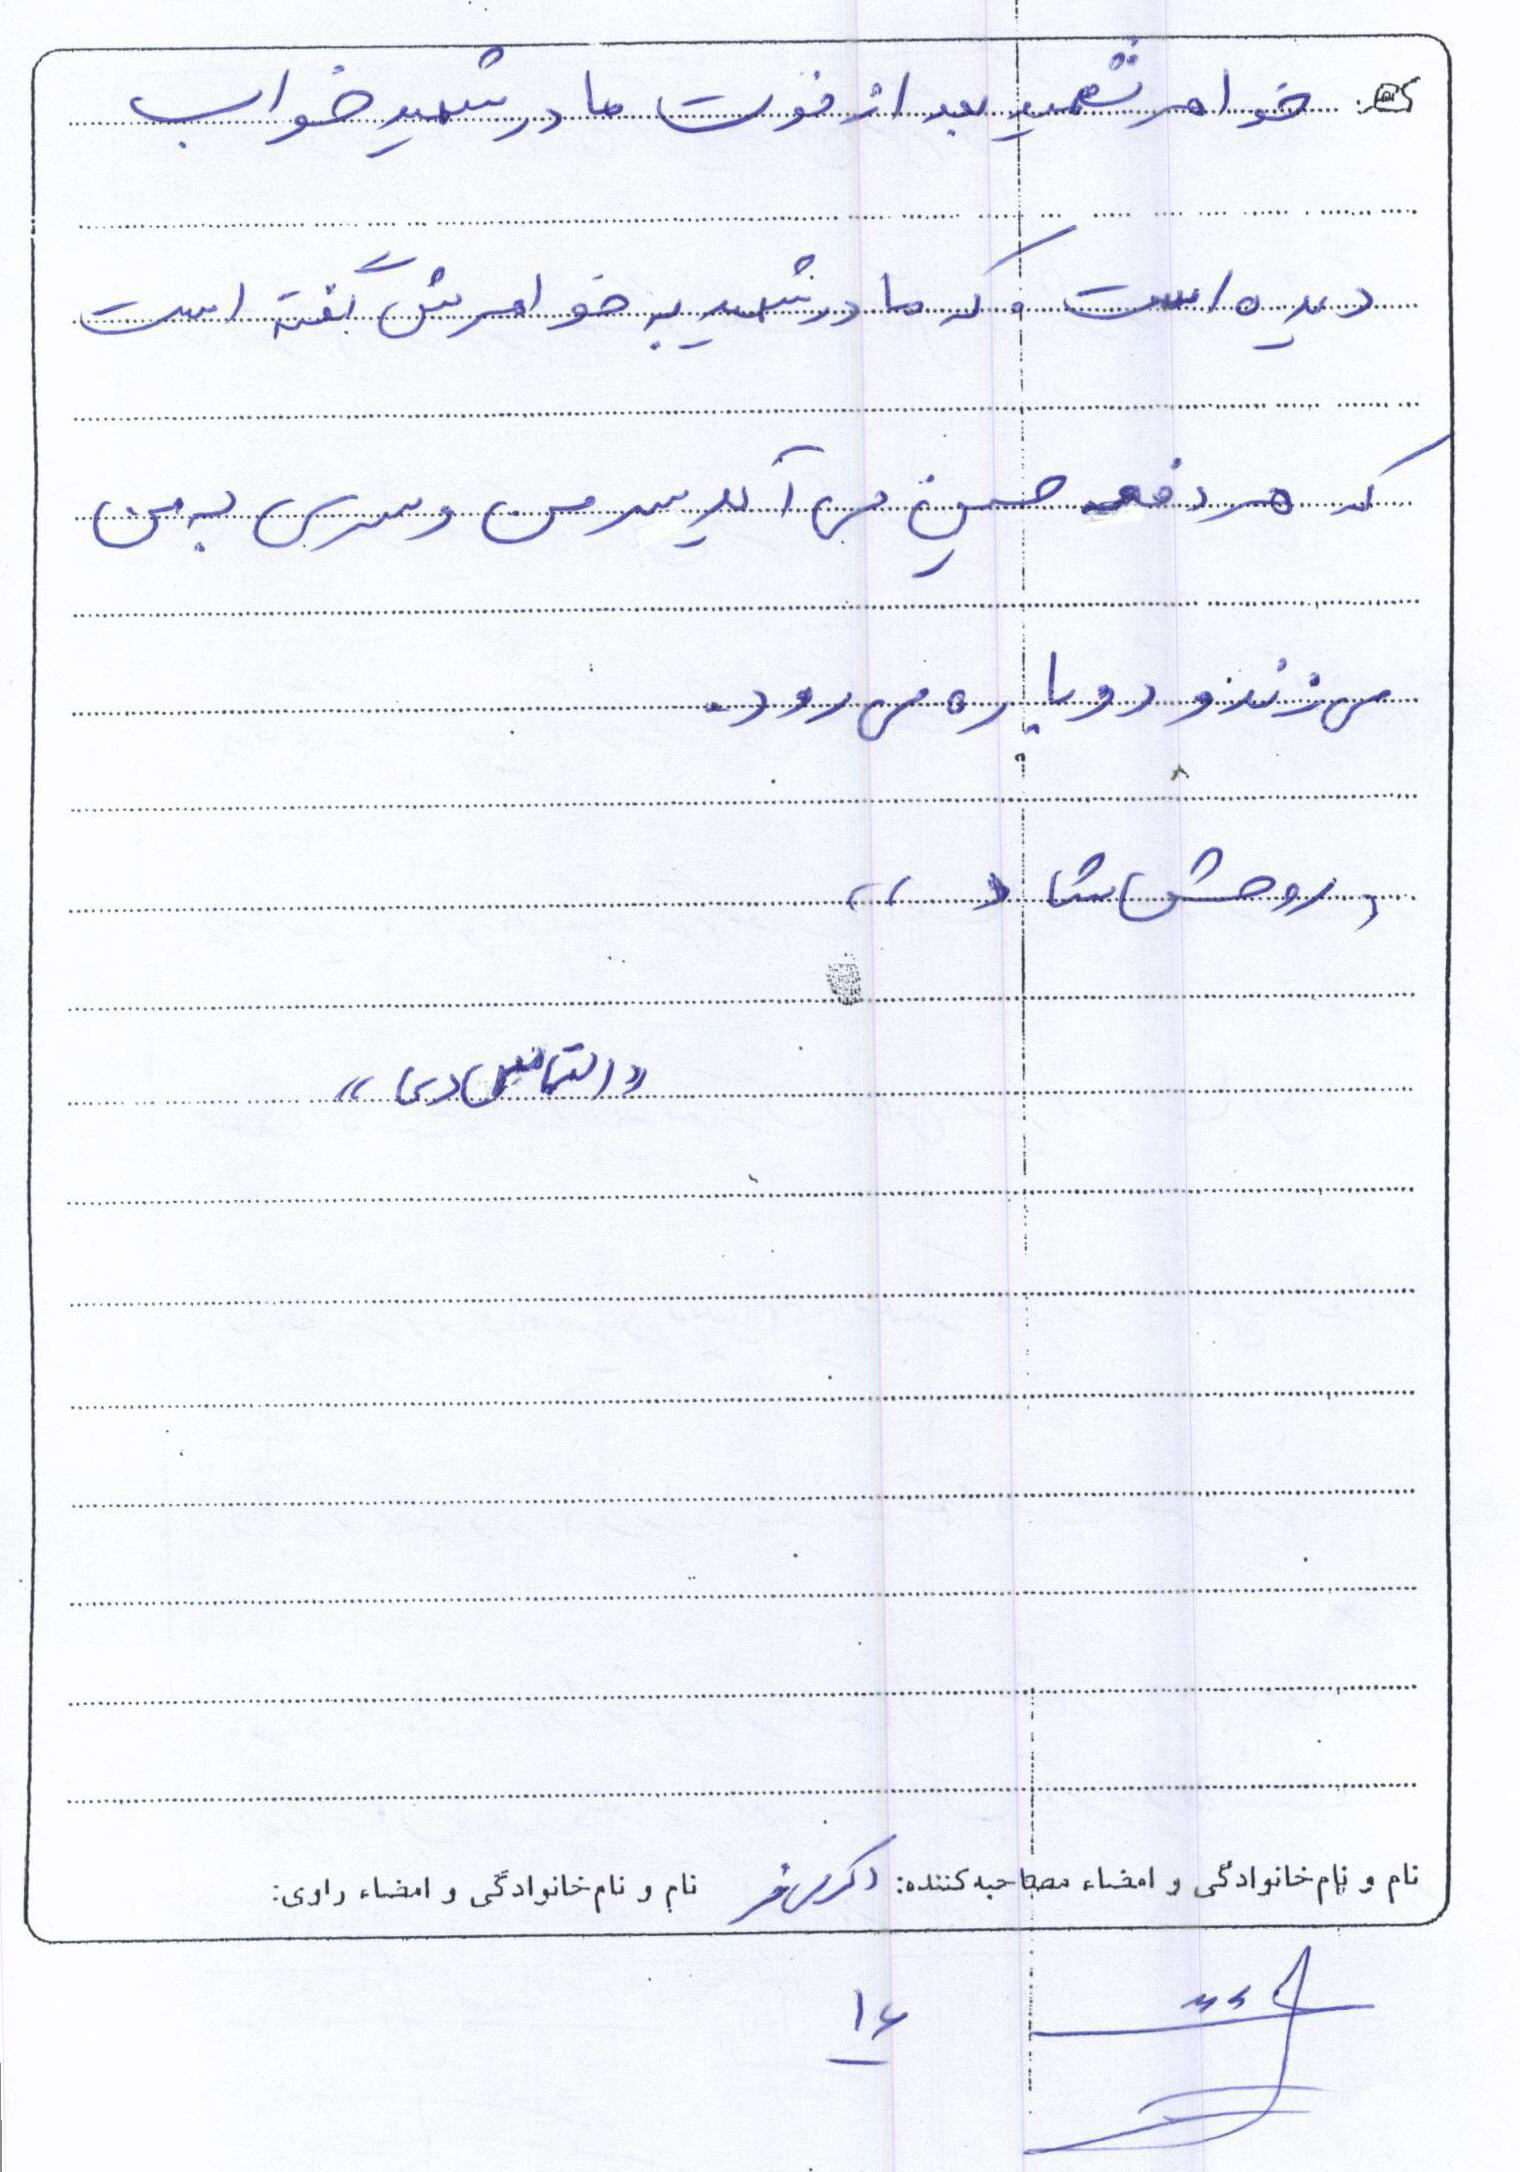 خواهر شهید بعد از فوت مادر شهید خواب
دیده است که مادر شهید به خواهرش گفته است
که هر دفعه حسین می آید پیش من و سری به من
می زند و دوباره می رود.
«روحش شاد»
«التماس دعا»
نام و نام‌خانوادگی و امضاء مصاحبه‌کننده: نام و نام‌خانوادگی و امضاء راوی:
۱۶